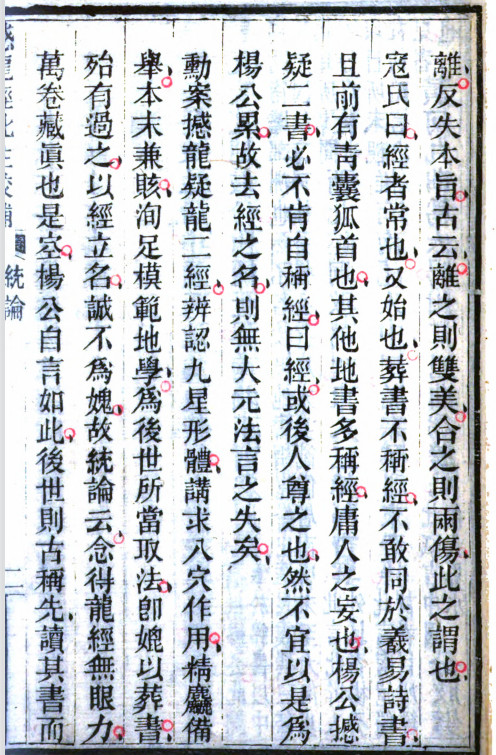 離反失本旨古云離之則雙美合之則兩傷此之謂也
寇氏曰經者常也又始也葬書不稱經不敢同於羲易詩書
且前有青囊狐首也其他地書多稱經庸人之妄也楊公撼
疑二書必不肯自稱經曰經或後人尊之也然不宜以是為
楊公累故去經之名則無大元法言之失矣
勳案撼龍疑龍二經辨認九星形體講求八穴作用精麤備
舉本末兼賅洵足模範地學為後世所當取法卽媲以葬書
殆有過之以經立名誠不爲媿故統論云念得龍經無眼力
萬卷藏眞也是空楊公自言如此後世則古稱先讀其書而
統論